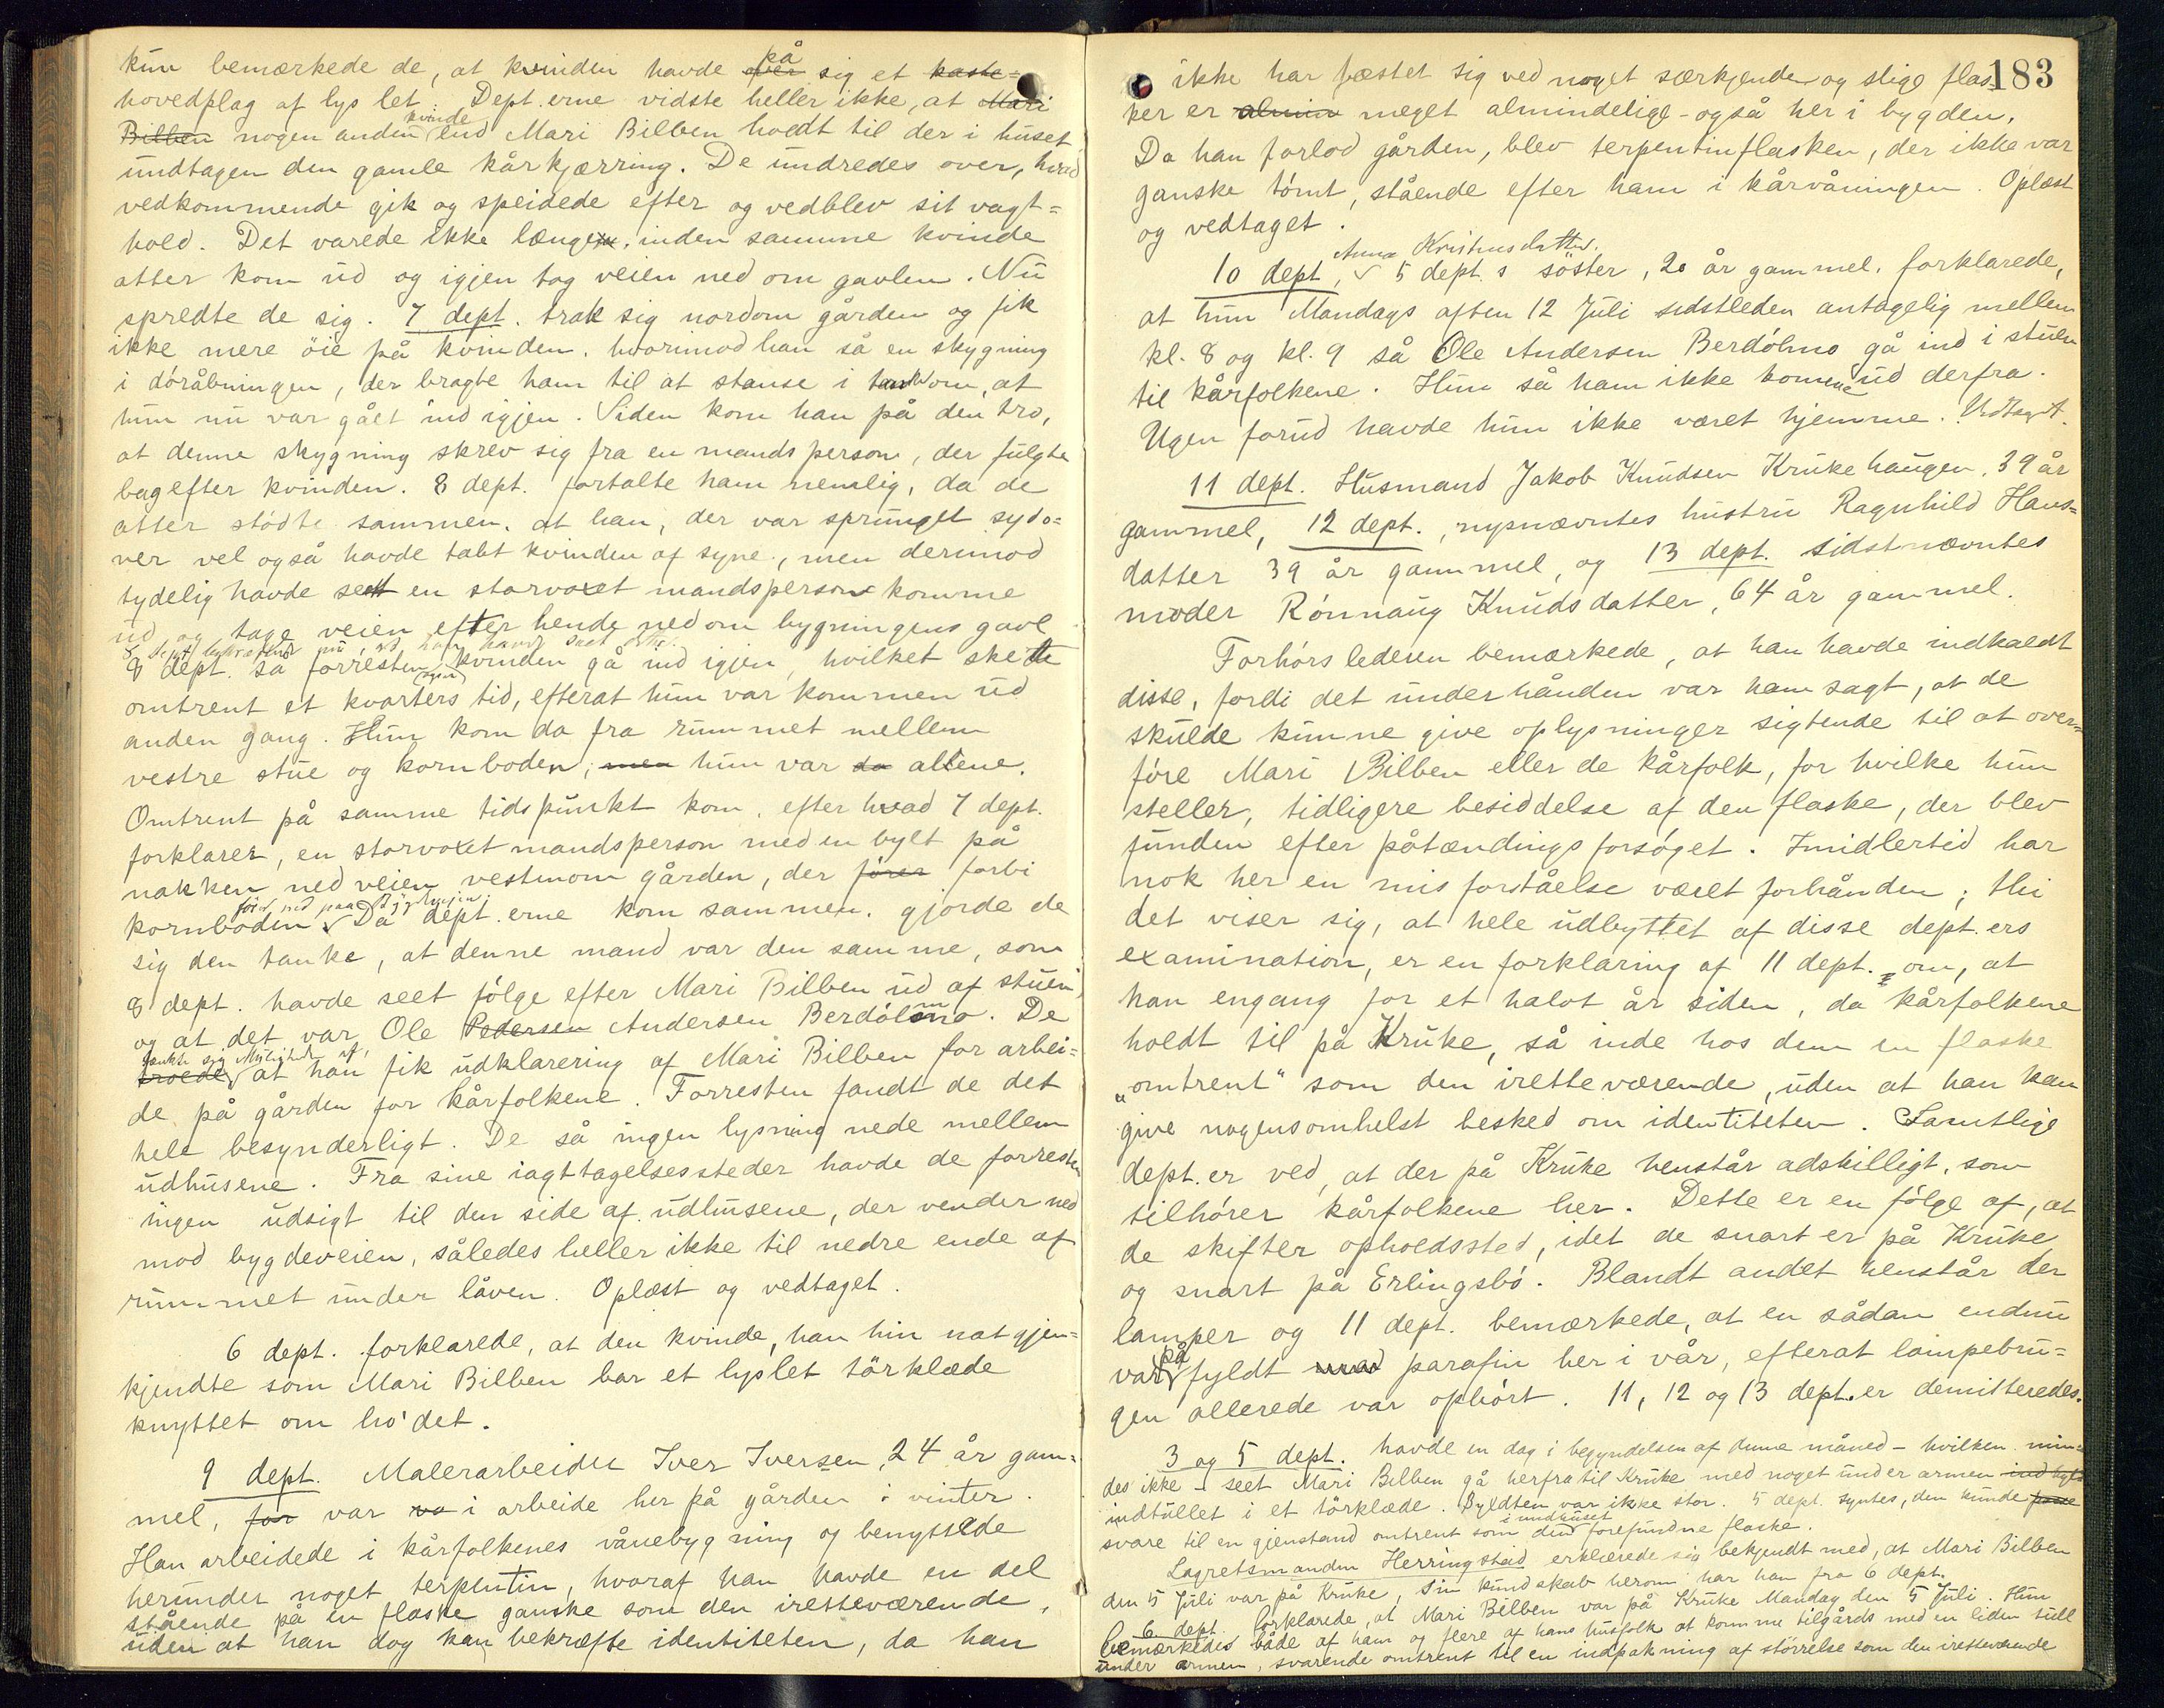 kun bemærkede de, at kvinden havde på sig et kaste-
hovedplag af lys let. Dept.erne vidste heller ikke, at Mari
Bilben nogen anden kvinde end Mari Bilben holdt til der i huset
undtagen den gamle kårkjærring. De undredes over, hvad
vedkommende gik og speidede efter og vedblev sit vagt=
hold. Det varede ikke længe, inden samme kvinde
atter kom ud og igjen tog veien ned om gavlen. Nu
spredte de sig. 7 dept. trak sig nordom gården og fik
ikke mere öie på kvinden, hvorimod han så en skygning
i döråbningen, der bragte ham til at stanse i tanke om, at
hun nu var gået ind igjen. Siden kom han på den tro,
at denne skygning skrev sig fra en mandsperson, der fulgte
bagefter kvinden. 8 dept. fortalte ham nemlig, da de
atter stödte sammen, at han, der var sprunget sydo=
ver vel også havde tabt kvinden af syne, men derimod
tydelig havde seet en storvoxet mandsperson komme
ud og tage veien efter hende ned om bygningens gavl
8 dept. så forresten kvinden gå ind igjen, hvilket skede
omtrent et kvarters tid, efterat hun var kommen ud
anden gang. Hun kom da fra rummet mellem
vestre stue og kornboden; men hun var da allene.
Omtrent på samme tidspunkt kom, efter hvad 7 dept.
forklarer, en storvoxet mandsperson med en bylt på
nakken ned veien vestenom gården, der fører forbi
kornboden. Da dept.erne kom sammen, gjorde de
sig den tanke, at denne mand var den samme, som
8 dept. havde seet fölge efter Mari Bilben ud af stuen,
og at det var Ole Pedersen Andersen Berdölmo. De
tænkte sig Muligheden af, at han fik udklarering af Mari Bilben for arbei=
de på gården for kårfolkene. Forresten fandt de det
hele besynderligt. De så ingen lysning nede mellem
udhusene. Fra sine iagttagelsessteder havde de forresten
ingen udsigt til den side af udhusene, der vender ned
mod bygdeveien, således heller ikke til nedre ende af
rummet under låven. Oplæst og vedtaget.
6 dept. forklarede, at den kvinde, han hin nat gjen=
kjendte som Mari Bilben bar et lyslet törklæde
knyttet om ho'det.
9 dept. Malerarbeider Iver Iversen, 24 år gam=
mel, for var va i arbeide her på gården i vinter.
Han arbeidede i kårfolkenes vånebygning og benyttede
herunder noget terpentin, hvoraf han havde en del
stående på en flaske ganske som den iretteværende,
uden at han dog kan bekræfte identiteten, da han
183
ikke har fæstet sig ved noget særkjende og slige flas=
ker er almin meget almindelige - også her i bygden.
Da han forlod gården, blev terpentinflasken, der ikke var
ganske tömt, stående efter ham i kårvåningen. Oplæst
og vedtaget.
10 dept, Anna Kristensdatter. 5 dept.s söster, 20 år gammel, forklarede,
at hun Mandags aften 12 Juli sidstleden antagelig mellem
kl. 8 og kl. 9 så Ole Andersen Berdölmo gå ind i stuen
til kårfolkene. Hun så ham ikke komme ud derfra.
Ugen forud havde hun ikke været hjemme. Vedtaget.
11 dept. Husmand Jakob Knudsen Krukehaugen, 39 år
gammel, 12 dept., nysnævntes hustru Ragnhild Hans=
datter 39 år gammel, og 13 dept. sidstnævntes
moder Rönnaug Knudsdatter, 64 år gammel.
Forhörslederen bemærkede, at han havde indkaldt
disse, fordi det underhånden var ham sagt, at de
skulde kunne give oplysninger sigtende til at over=
före Mari Bilben eller de kårfolk, for hvilke hun
steller, tidligere besiddelse af den flaske, der blev
funden efter påtændingsforsöget. Imidlertid har
nok her en misforståelse været forhånden; thi
det viser sig, at hele udbyttet af disse dept.ers
examination, er en forklaring af 11 dept. om, at
han engang for et halvt år siden, da kårfolkene
holdt til på Kruke, så inde hos dem en flaske
„omtrent“ som den iretteværende, uden at han kan
give nogensomhelst besked om identiteten. Samtlige
dept.er ved, at der på Kruke henstår adskilligt, som
tilhörer kårfolkene her. Dette er en fölge af, at
de skifter opholdssted, idet de snart er på Kruke
og snart på Erlingsbö. Blandt andet henstår der
lamper og 11 dept. bemærkede, at en sådan endnu
var påfyldt med parafin her i vår, efterat lampebru=
gen allerede var ophört. 11, 12 og 13 dept.er demitteredes.
3 og 5 dept. havde en dag i begyndelsen af denne måned - hvilken min=
des ikke - seet Mari Bilben gå herfra til Kruke med noget under armen
indtullet i et törklæde. Byldten var ikke stor. 5 dept. syntes, den kunde
svare til en gjenstand omtrent som den i undhuset forefundne flaske.
Lagretsmanden Herringstad erklærede sig bekjendt med, at Mari Bilben
den 5 Juli var på Kruke, Sin kundskab herom har han fra 6 dept.
6 dept. forklarede, at Mari Bilben var på Kruke Mandag den 5 Juli. Hun
bemærkedes både af ham og flere af hans husfolk at komme tilgårds med en liden tull
under armen, svarende omtrent til en indpakning af störrelse som den iretteværende